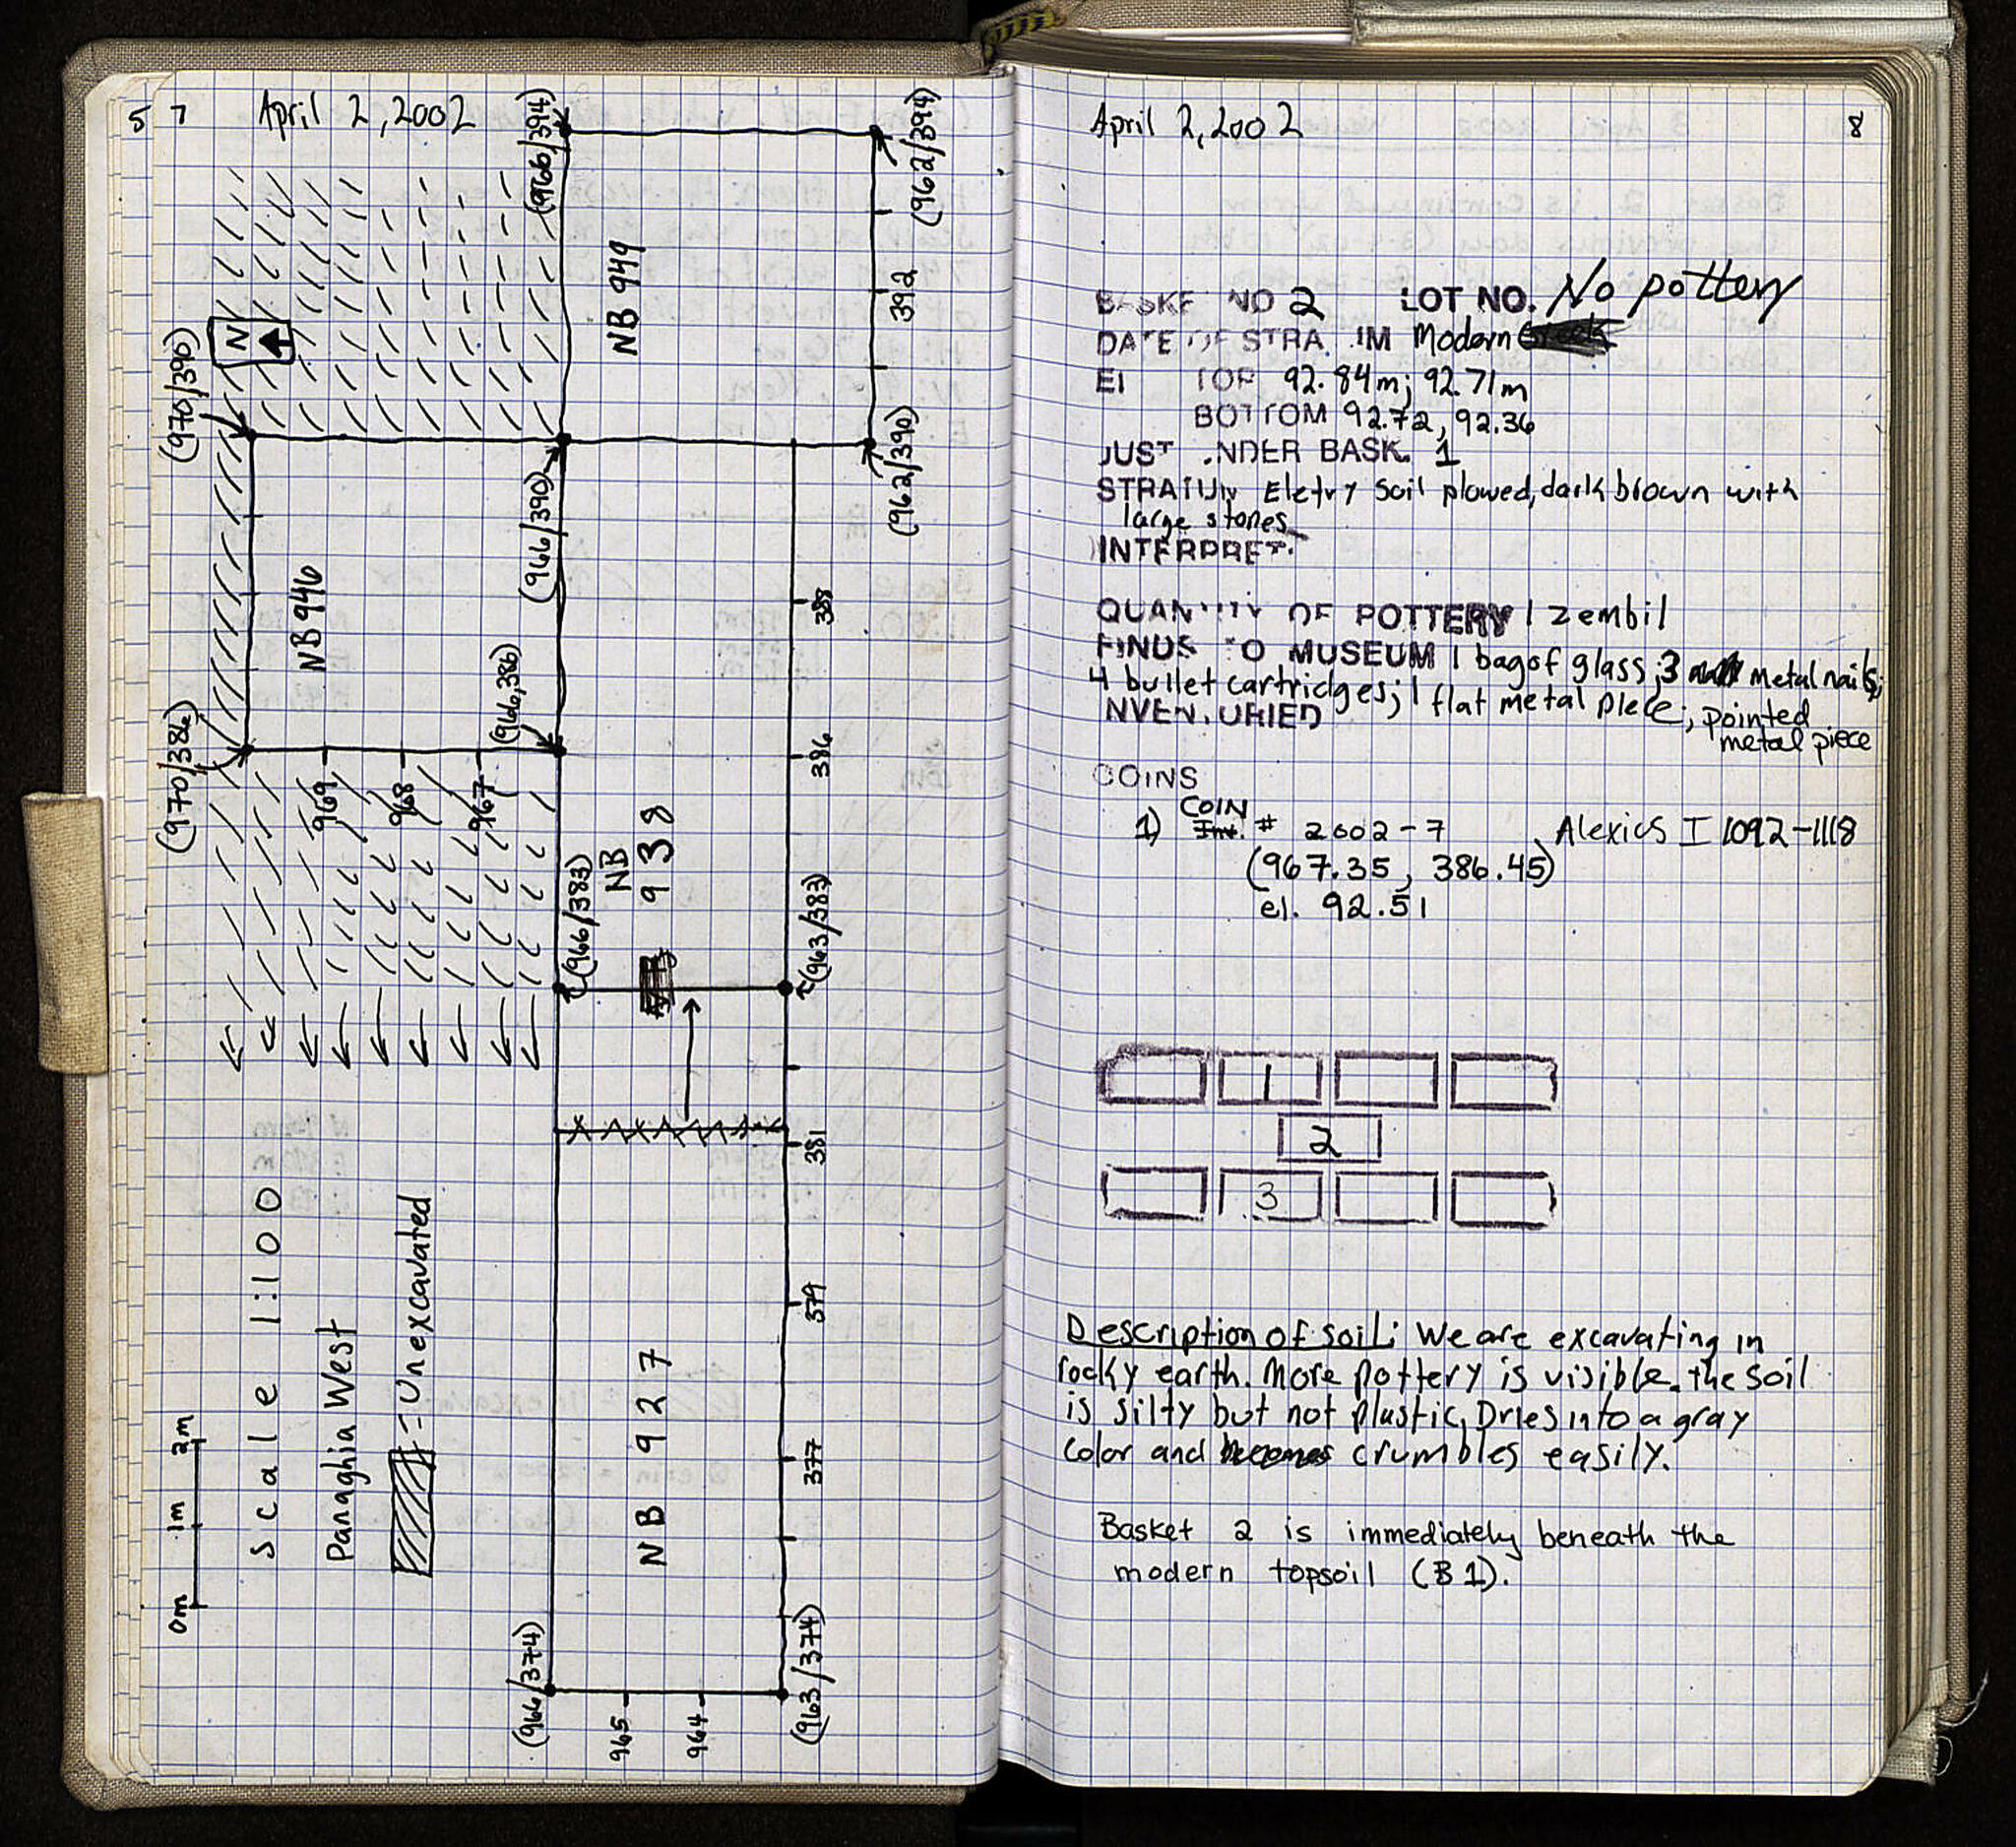 5 7 April 2, 2002
(966/394)
(962/394)
N
NB 949
392
(970/390)
(966/390)
(962/390)
NB 946
388
(970/386)
(966,386)
386
969
968
967
NB
938
(966/383)
(963/383)
381
Scale 1:100
Panaghia West
=Unexcavated
379
NB 927
377
0m 1m 2m
(966/374)
965
964
(963/374)
April 2, 2002 8
BASKE NO 2 LOT NO. No pottery
DATE OF STRA IM Modern
El TOP 92.84m; 92.71m
BOTTOM 92.72, 92.36
JUST NDER BASK. 1
STRATUM soil plowed, dark brown with
large stones
INTERPRET.
QUANTITY OF POTTERY 1 zembil
FINDS TO MUSEUM 1 bag of glass; 3 metal nails;
4 bullet cartridges; 1 flat metal piece; pointed
metal piece
NVENTORIED
COINS
COIN
1) Inv. # 2002-7 Alexios I 1092-1118
(967.35, 386.45)
el. 92.51
1
2
3
Description of soil: We are excavating in
rocky earth. More pottery is visible. the soil
is silty but not plastic, Dries into a gray
color and becomes crumbles easily.
Basket 2 is immediately beneath the
modern topsoil (B1).